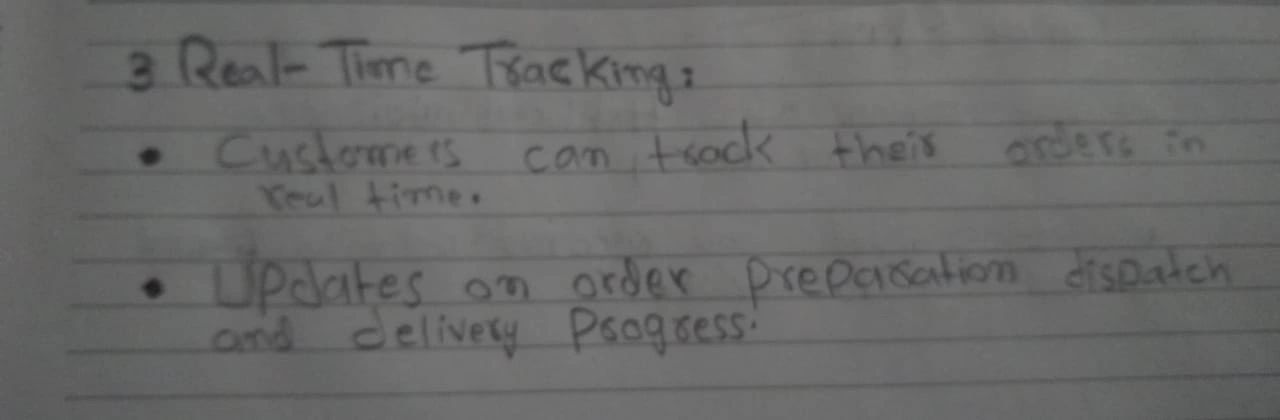 3 Real-Time Tracking:
• Customers can track their orders in
real time.
• Updates on order preparation dispatch
and delivery Progress.